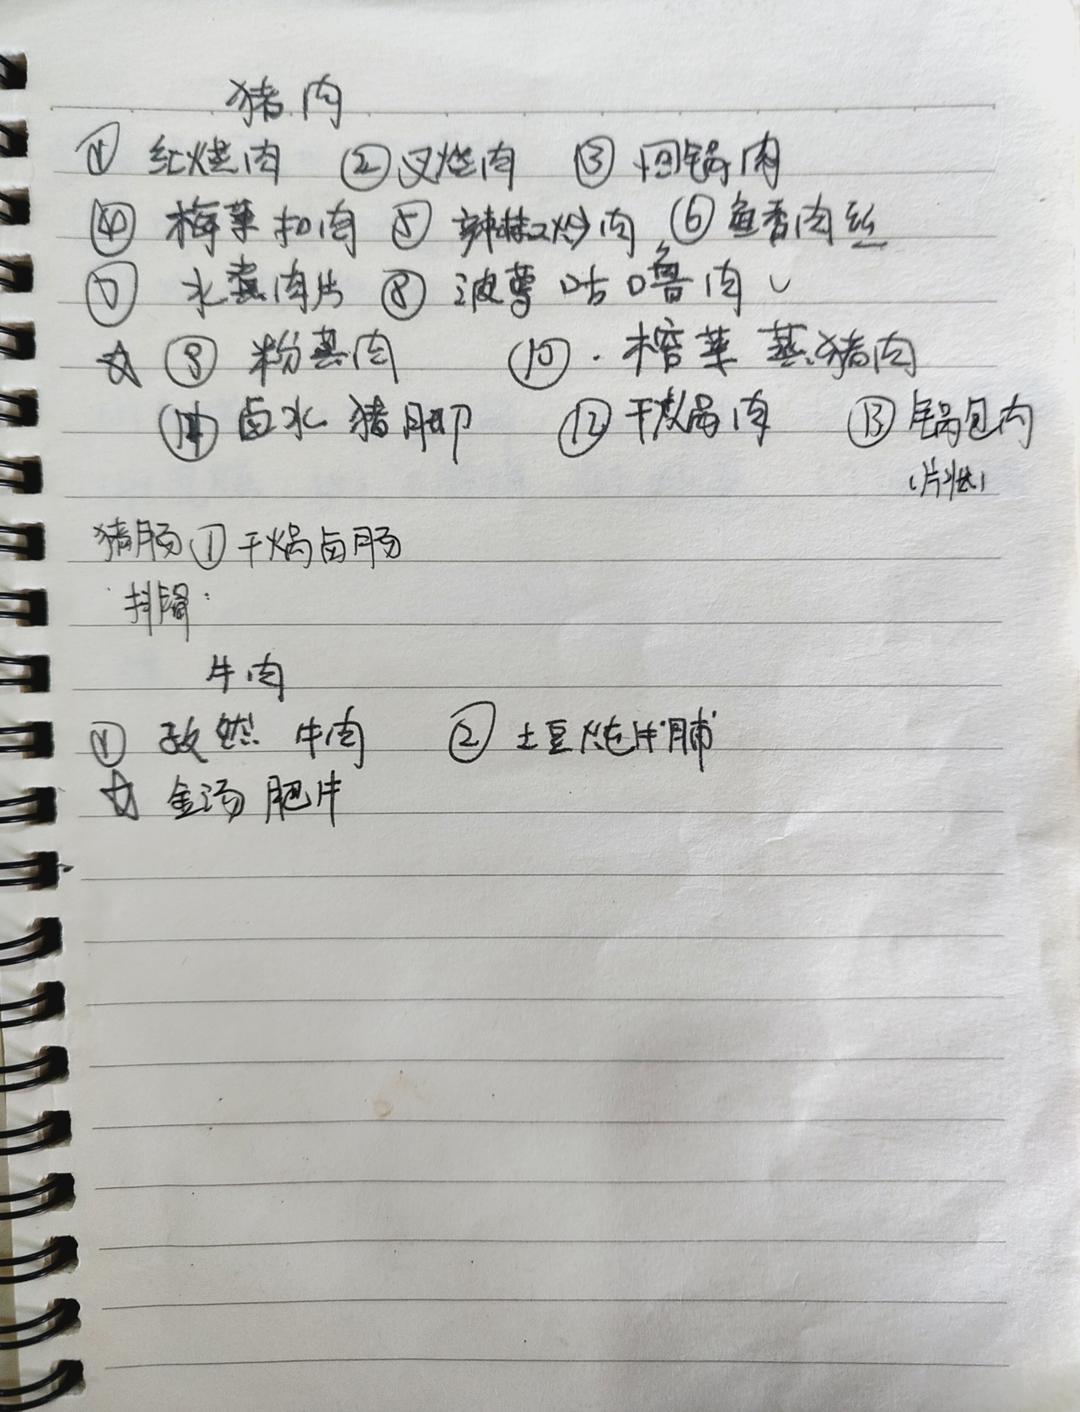 猪肉
① 红烧肉 ② 叉烧肉 ③ 回锅肉
④ 梅菜扣肉 ⑤ 辣椒炒肉 ⑥ 鱼香肉丝
⑦ 水煮肉片 ⑧ 波萝咕噜肉
☆ ⑨ 粉蒸肉 ⑩ 榨菜蒸猪肉
⑪ 卤水猪脚 ⑫ 干锅肉 ⑬ 锅包肉
(片状)
猪肠 ① 干煸卤肠
排骨:
牛肉
① 孜然牛肉 ② 土豆炖牛脯
☆ 金汤肥牛